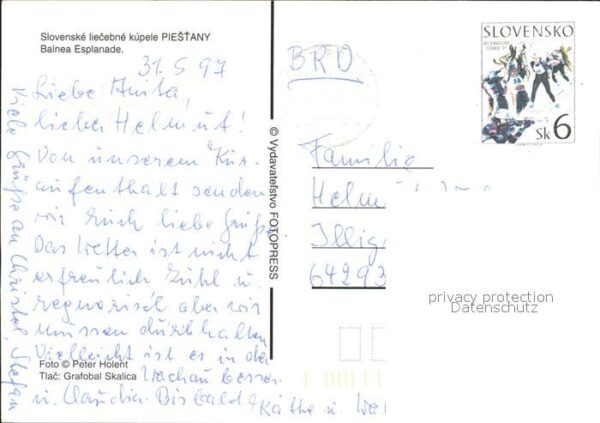 Slovenské liečebné kúpele PIEŠŤANY
Balnea Esplanade.
31.5 97
Liebe Anita,
lieber Helmut!
Von unserem Kur-
aufenthalt senden
wir Euch liebe Grüße.
Das Wetter ist nicht
erfreulich kühl u.
regnerisch aber wir
müssen durchhalten
Vielleicht ist es in der
Wachau besser.
u. Claudia Bis bald
Käthe u.
Viele Grüße an Christel, Stefan
Foto © Peter Holent
Tlač: Grafobal Skalica
© Vydavateľstvo FOTOPRESS
BRD
SLOVENSKO
Sk 6
Familie
Helm
Illig
64293
privacy protection
Datenschutz